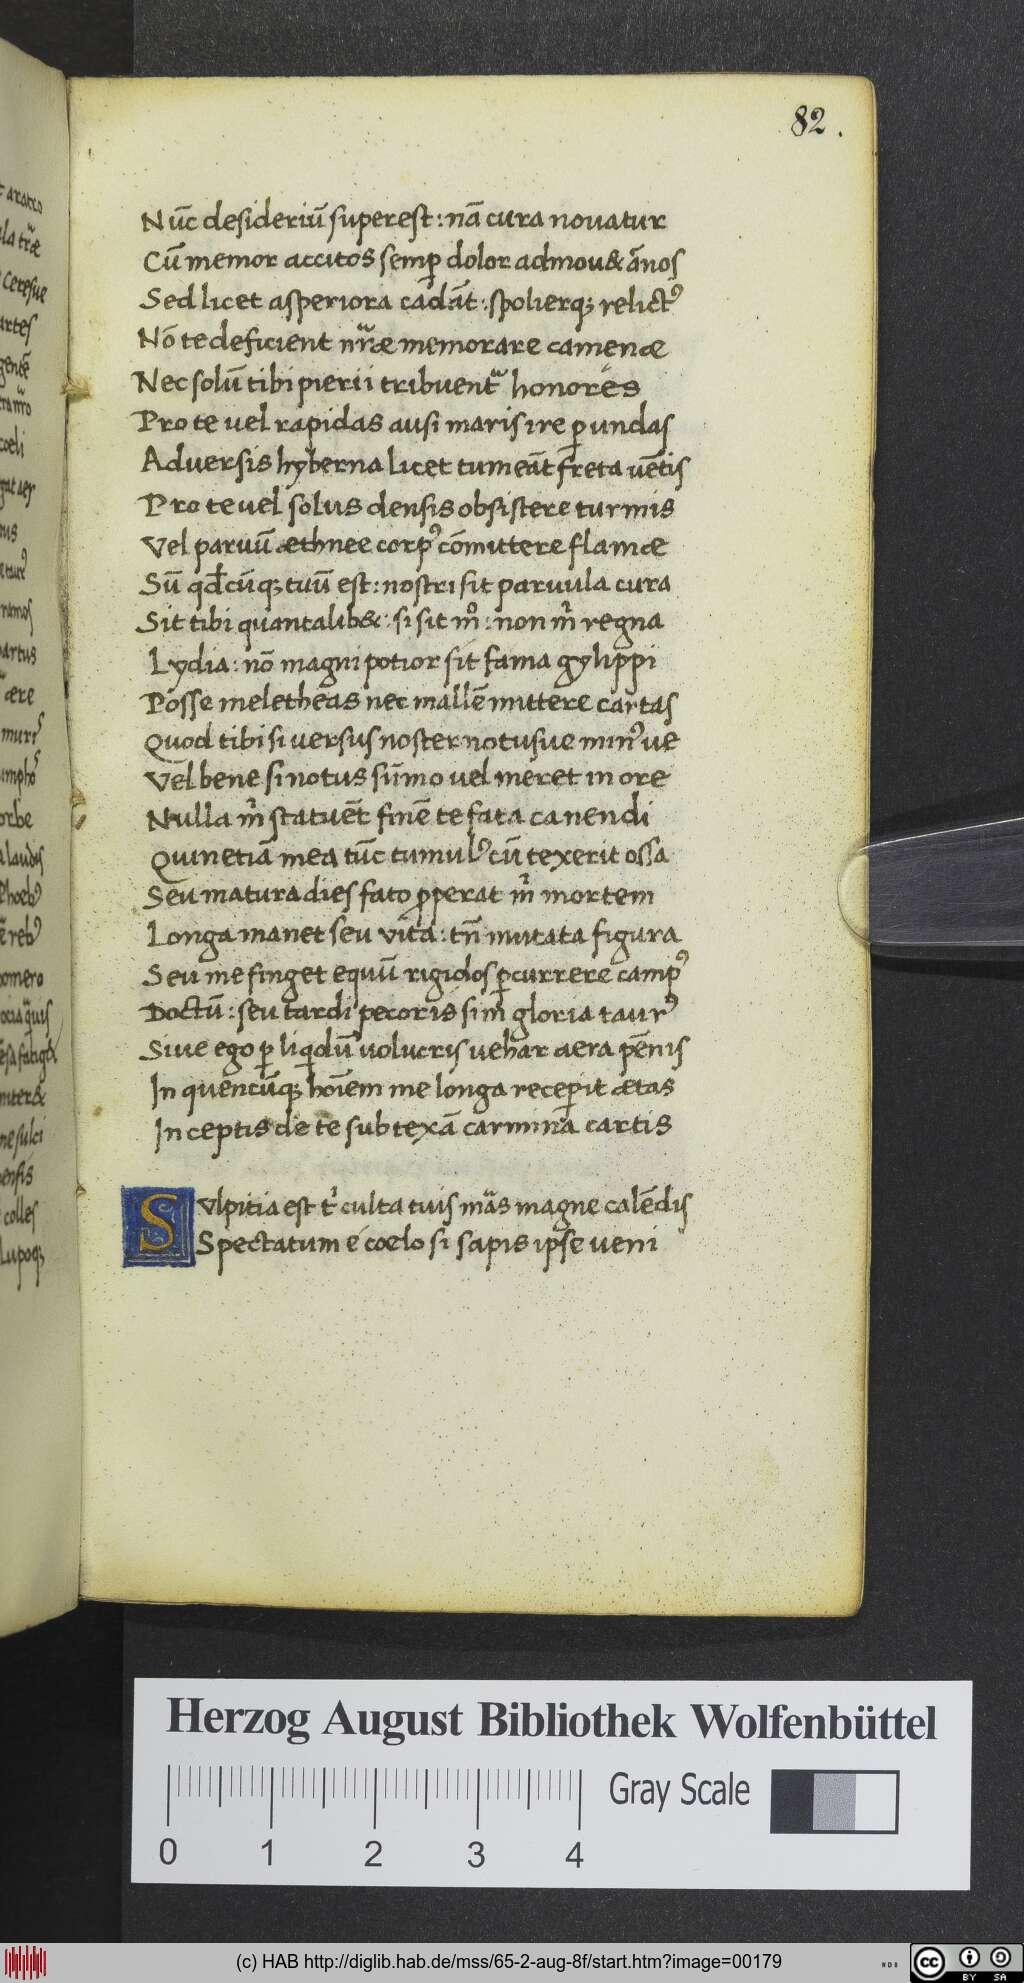 82.
Nūc desideriū superest: nā cura novatur
Cū memor accitos semꝑ dolor admou& ānos
Sed licet asperiora cādāt: spolierqꝫ relictꝰ
Nō te deficient nr̄æ memorare camenæ
Nec solū tibi pierii tribuentᷓ honores
Pro te vel rapidas ausi maris ire ꝑ undas
Adversis hyberna licet tumeāt freta uētis
Pro te vel solus densis obsistere turmis
Vel paruū æthnee corpꝰ cōmittere flamæ
Sū qd̄cūqꝫ tuū est: nostri sit paruula cura
Sit tibi quantalib&: si sit mº: non m̄ regna
Lydia: nō magni potior sit fama gylippi
Posse meletheas nec mallē mittere cartas
Quod tibi si versus noster notusve minꝰ ve
Vel bene si notus sūmo vel meret in ore
Nulla m̄ statuēt finē te fata canendi
Quinetiā mea tūc tumulꝰ cū texerit ossa
Seu matura dies fato ꝓperat m̄ mortem
Longa manet seu vita: tn̄ mutata figura
Seu me finget equū rigidos ꝑcurrere campꝰ
Doctū: seu tardi pecoris sim gloria taurꝰ
Sive ego ꝑ liqidū volucris vehar aera pēnis
In quencūqꝫ hoiem me longa receperit ætas
Inceptis de te subtexā carmina cartis
Sulpitia est t̄ culta tuis mās magne calēdis
Spectatum é coelo si sapis ipse veni
t aratro
Ceresve
artes
coeli
artus
ære
orbe
Phoebꝰ
rebꝰ
homero
ne sulci
colles
Lupoqꝫ
Herzog August Bibliothek Wolfenbüttel
Gray Scale
0 1 2 3 4
(c) HAB http://diglib.hab.de/mss/65-2-aug-8f/start.htm?image=00179
cc BY SA